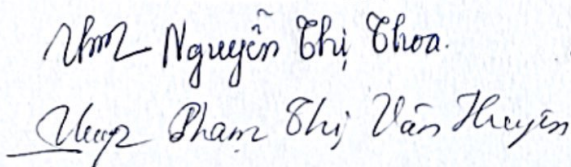 Nguyễn Thị Thoa.
Phạm Thị Vân Huyền